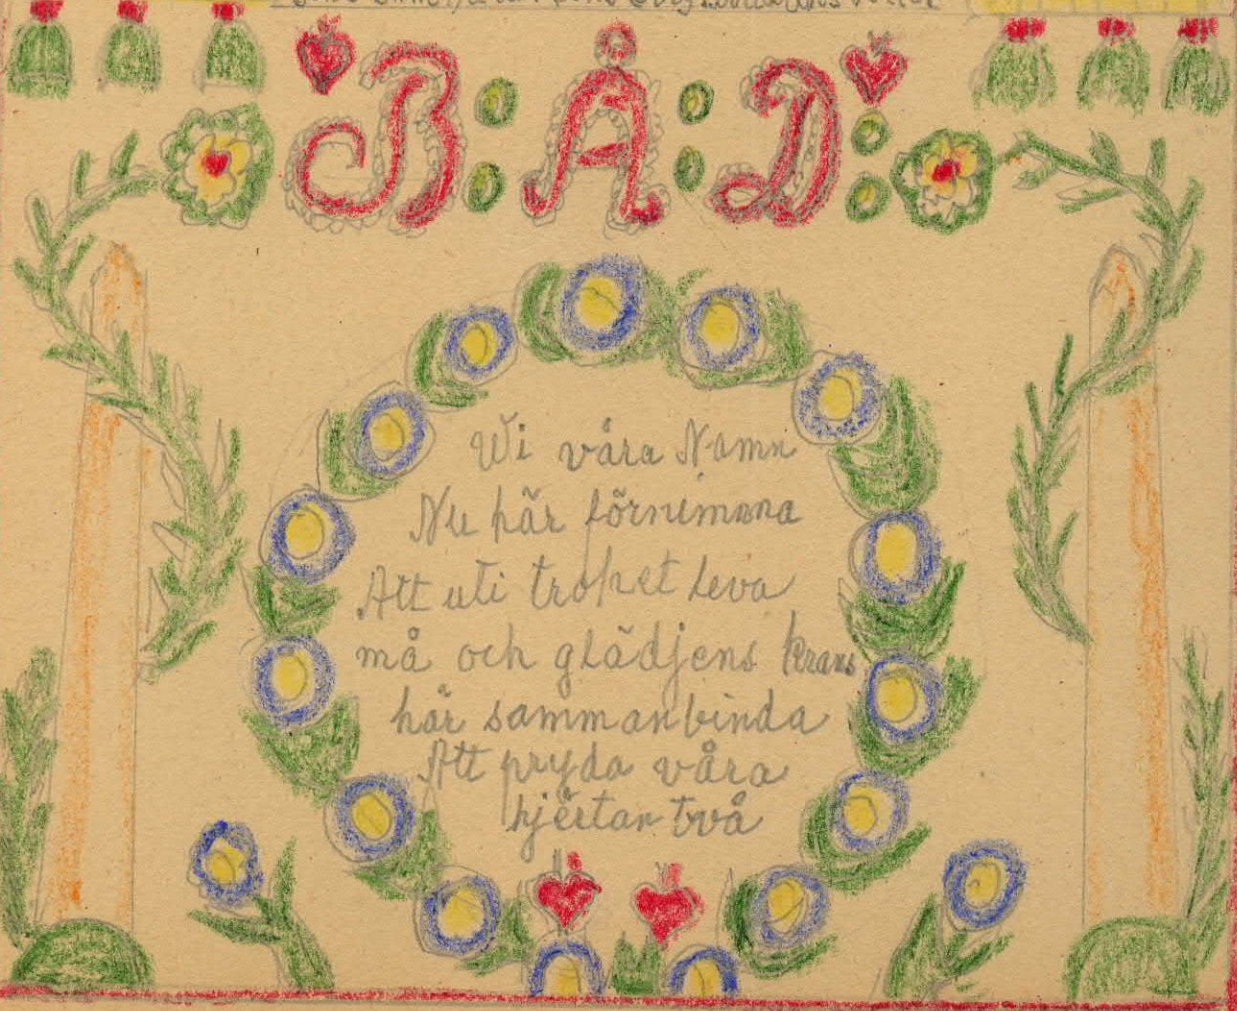 B : Å : D :
Wi våra Namn
Nu här förnimma
Att uti trohet Leva
må och glädjens krans
här sammanbinda
Att pryda våra
hjertan två